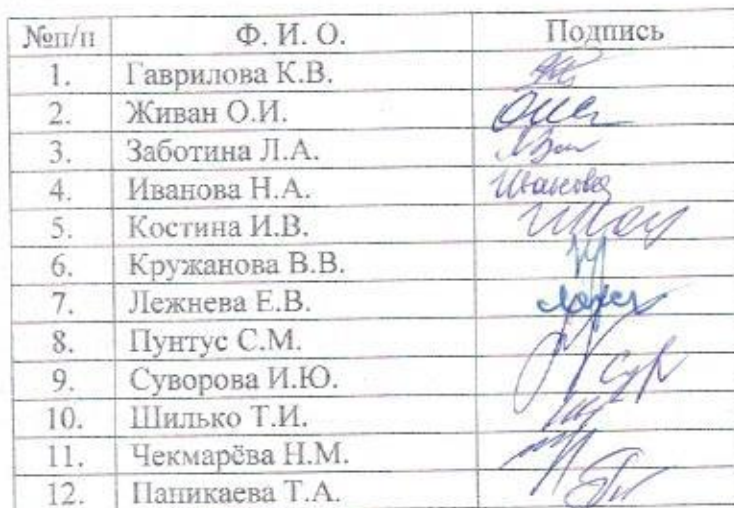 №п/п Ф. И. О. Подпись
1. Гаврилова К.В.
2. Живан О.И.
3. Заботина Л.А.
4. Иванова Н.А. Иванова
5. Костина И.В.
6. Кружанова В.В.
7. Лежнева Е.В.
8. Пунтус С.М.
9. Суворова И.Ю.
10. Шилько Т.И.
11. Чекмарёва Н.М.
12. Паникаева Т.А.